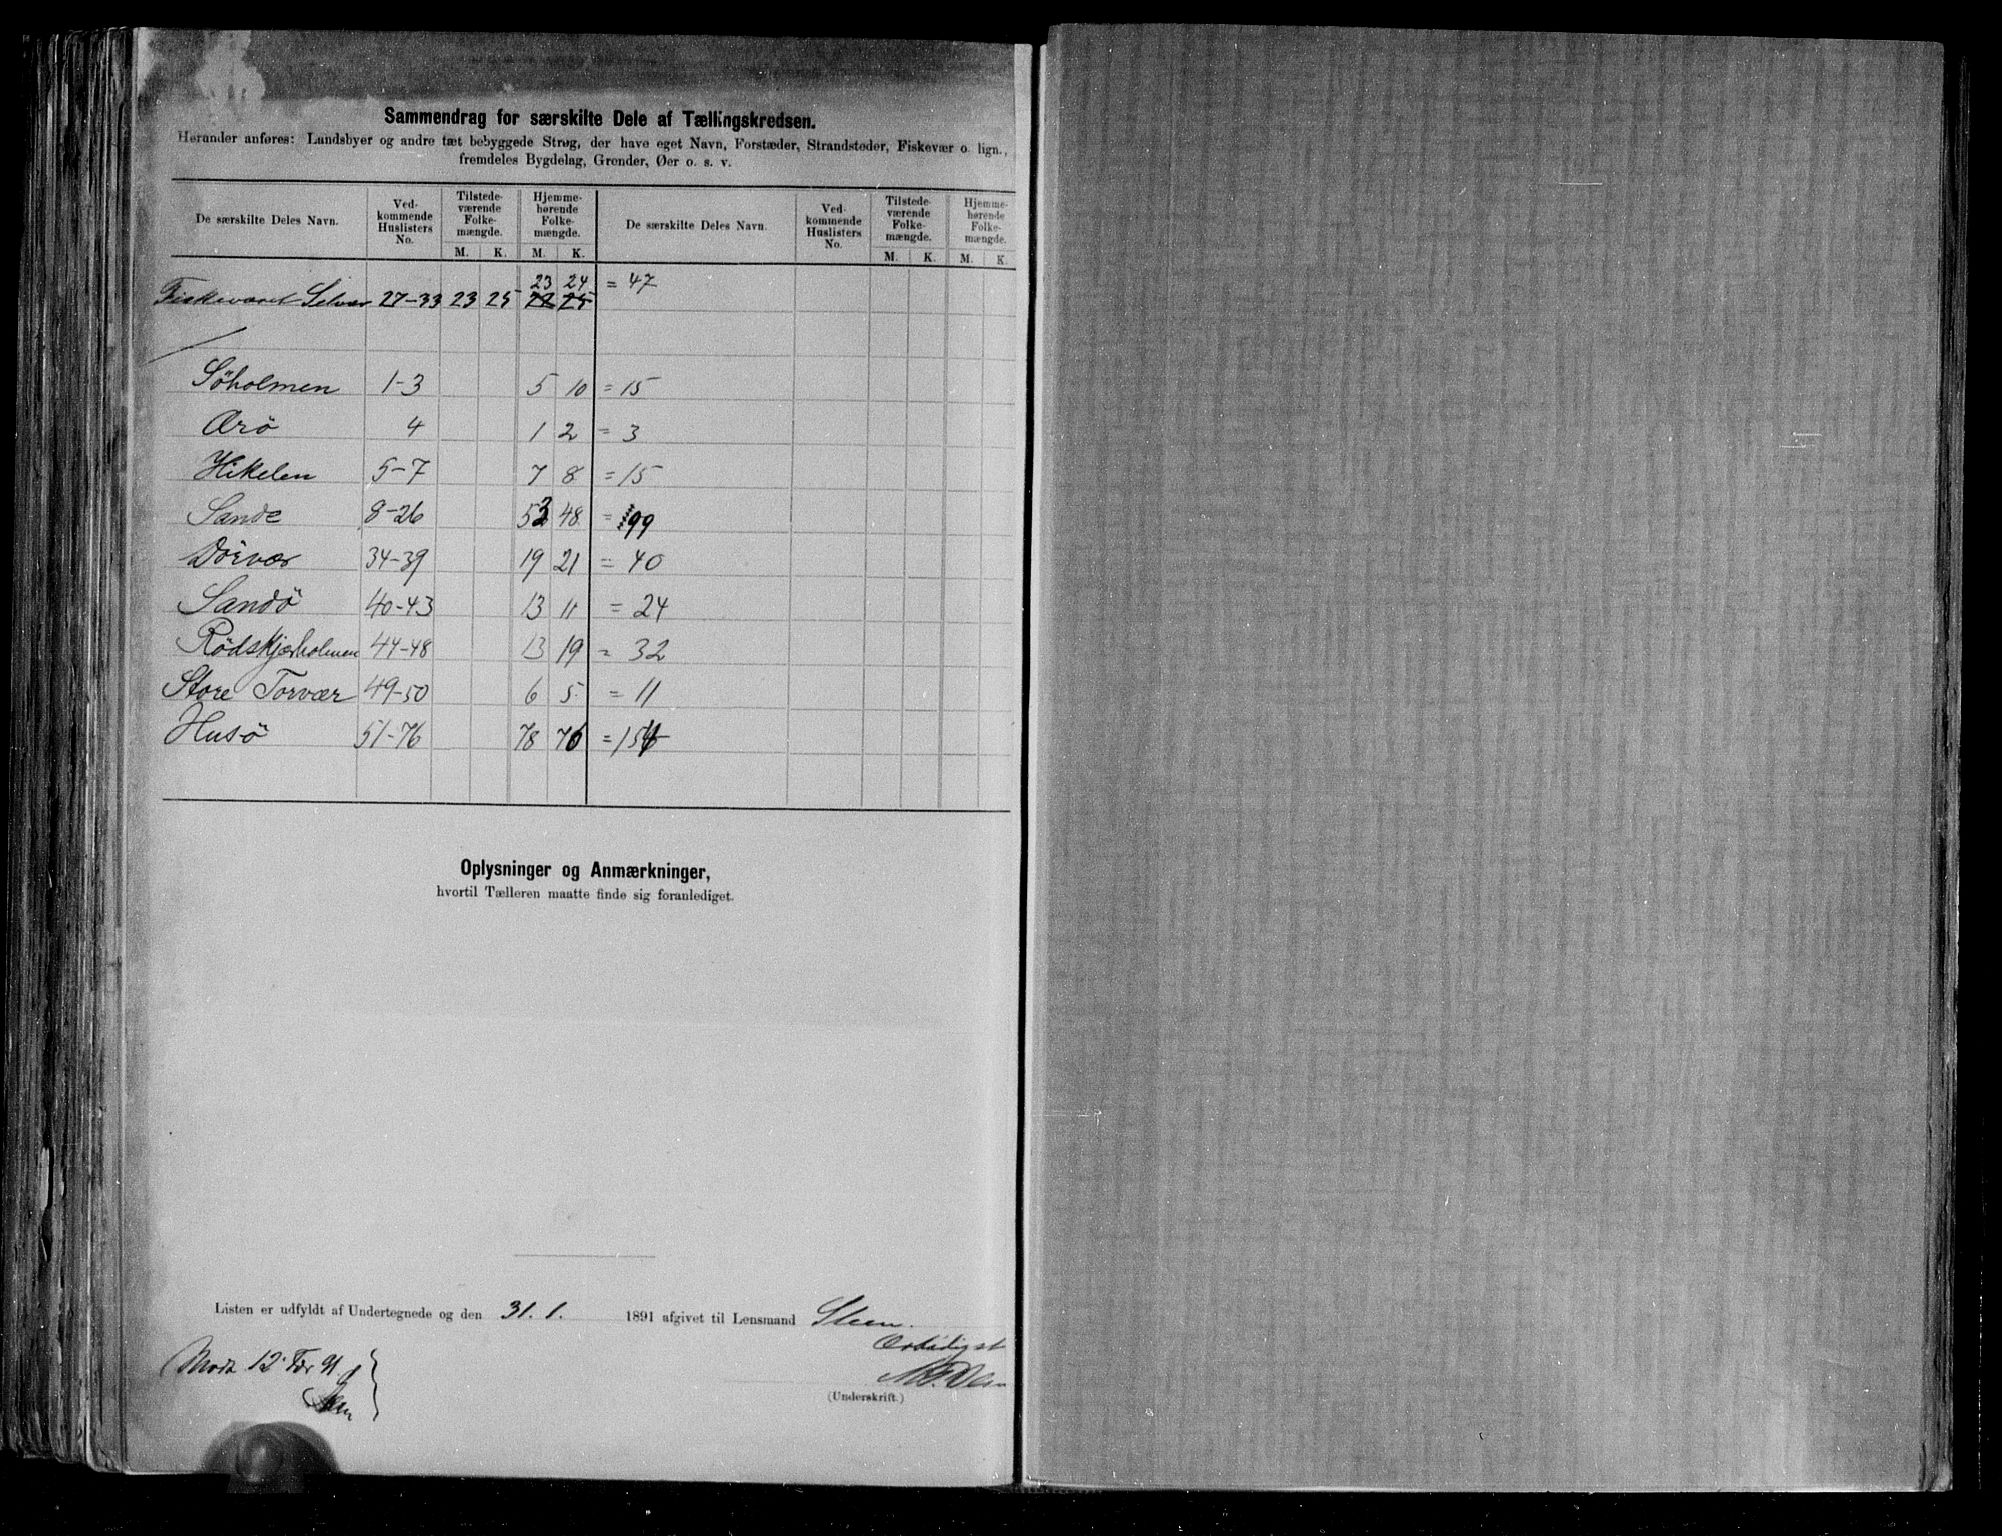 Sammendrag for særskilte Dele af Tællingskredsen.
Herunder anføres: Landsbyer og andre tæt bebyggede Strøg, der have eget Navn, Forstæder, Strandsteder, Fiskevær o. lign.,
fremdeles Bygdelag, Grender, Øer o. s. v.
De særskilte Deles Navn. Ved-kommende Huslisters No. Tilstede-værende Folke-mængde. Hjemme-hørende Folke-mængde. De særskilte Deles Navn. Ved-kommende Huslisters No. Tilstede-værende Folke-mængde. Hjemme-hørende Folke-mængde.
M. K. M. K. M. K. M. K.
23 24 = 47
Fiskeværet Selvær 27-33 23 25 22 25
Söholmen 1-3 5 10 = 15
Ærö 4 1 2 = 3
Hikelen 5-7 7 8 = 15
Sande 8-26 48 = 99
Dörvær 34-39 19 21 = 40
Sandö 40-43 13 11 = 24
Rödskjærholmen 44-48 13 19 = 32
Store Torvær 49-50 6 5 = 11
Husö 51-76 78 76 = 154
Oplysninger og Anmærkninger,
hvortil Tælleren maatte finde sig foranlediget.
Listen er udfyldt af Undertegnede og den 31. 1. 1891 afgivet til Lensmand Steen.
Ærbödigst
Modt 12 Febr 91
(Underskrift.)